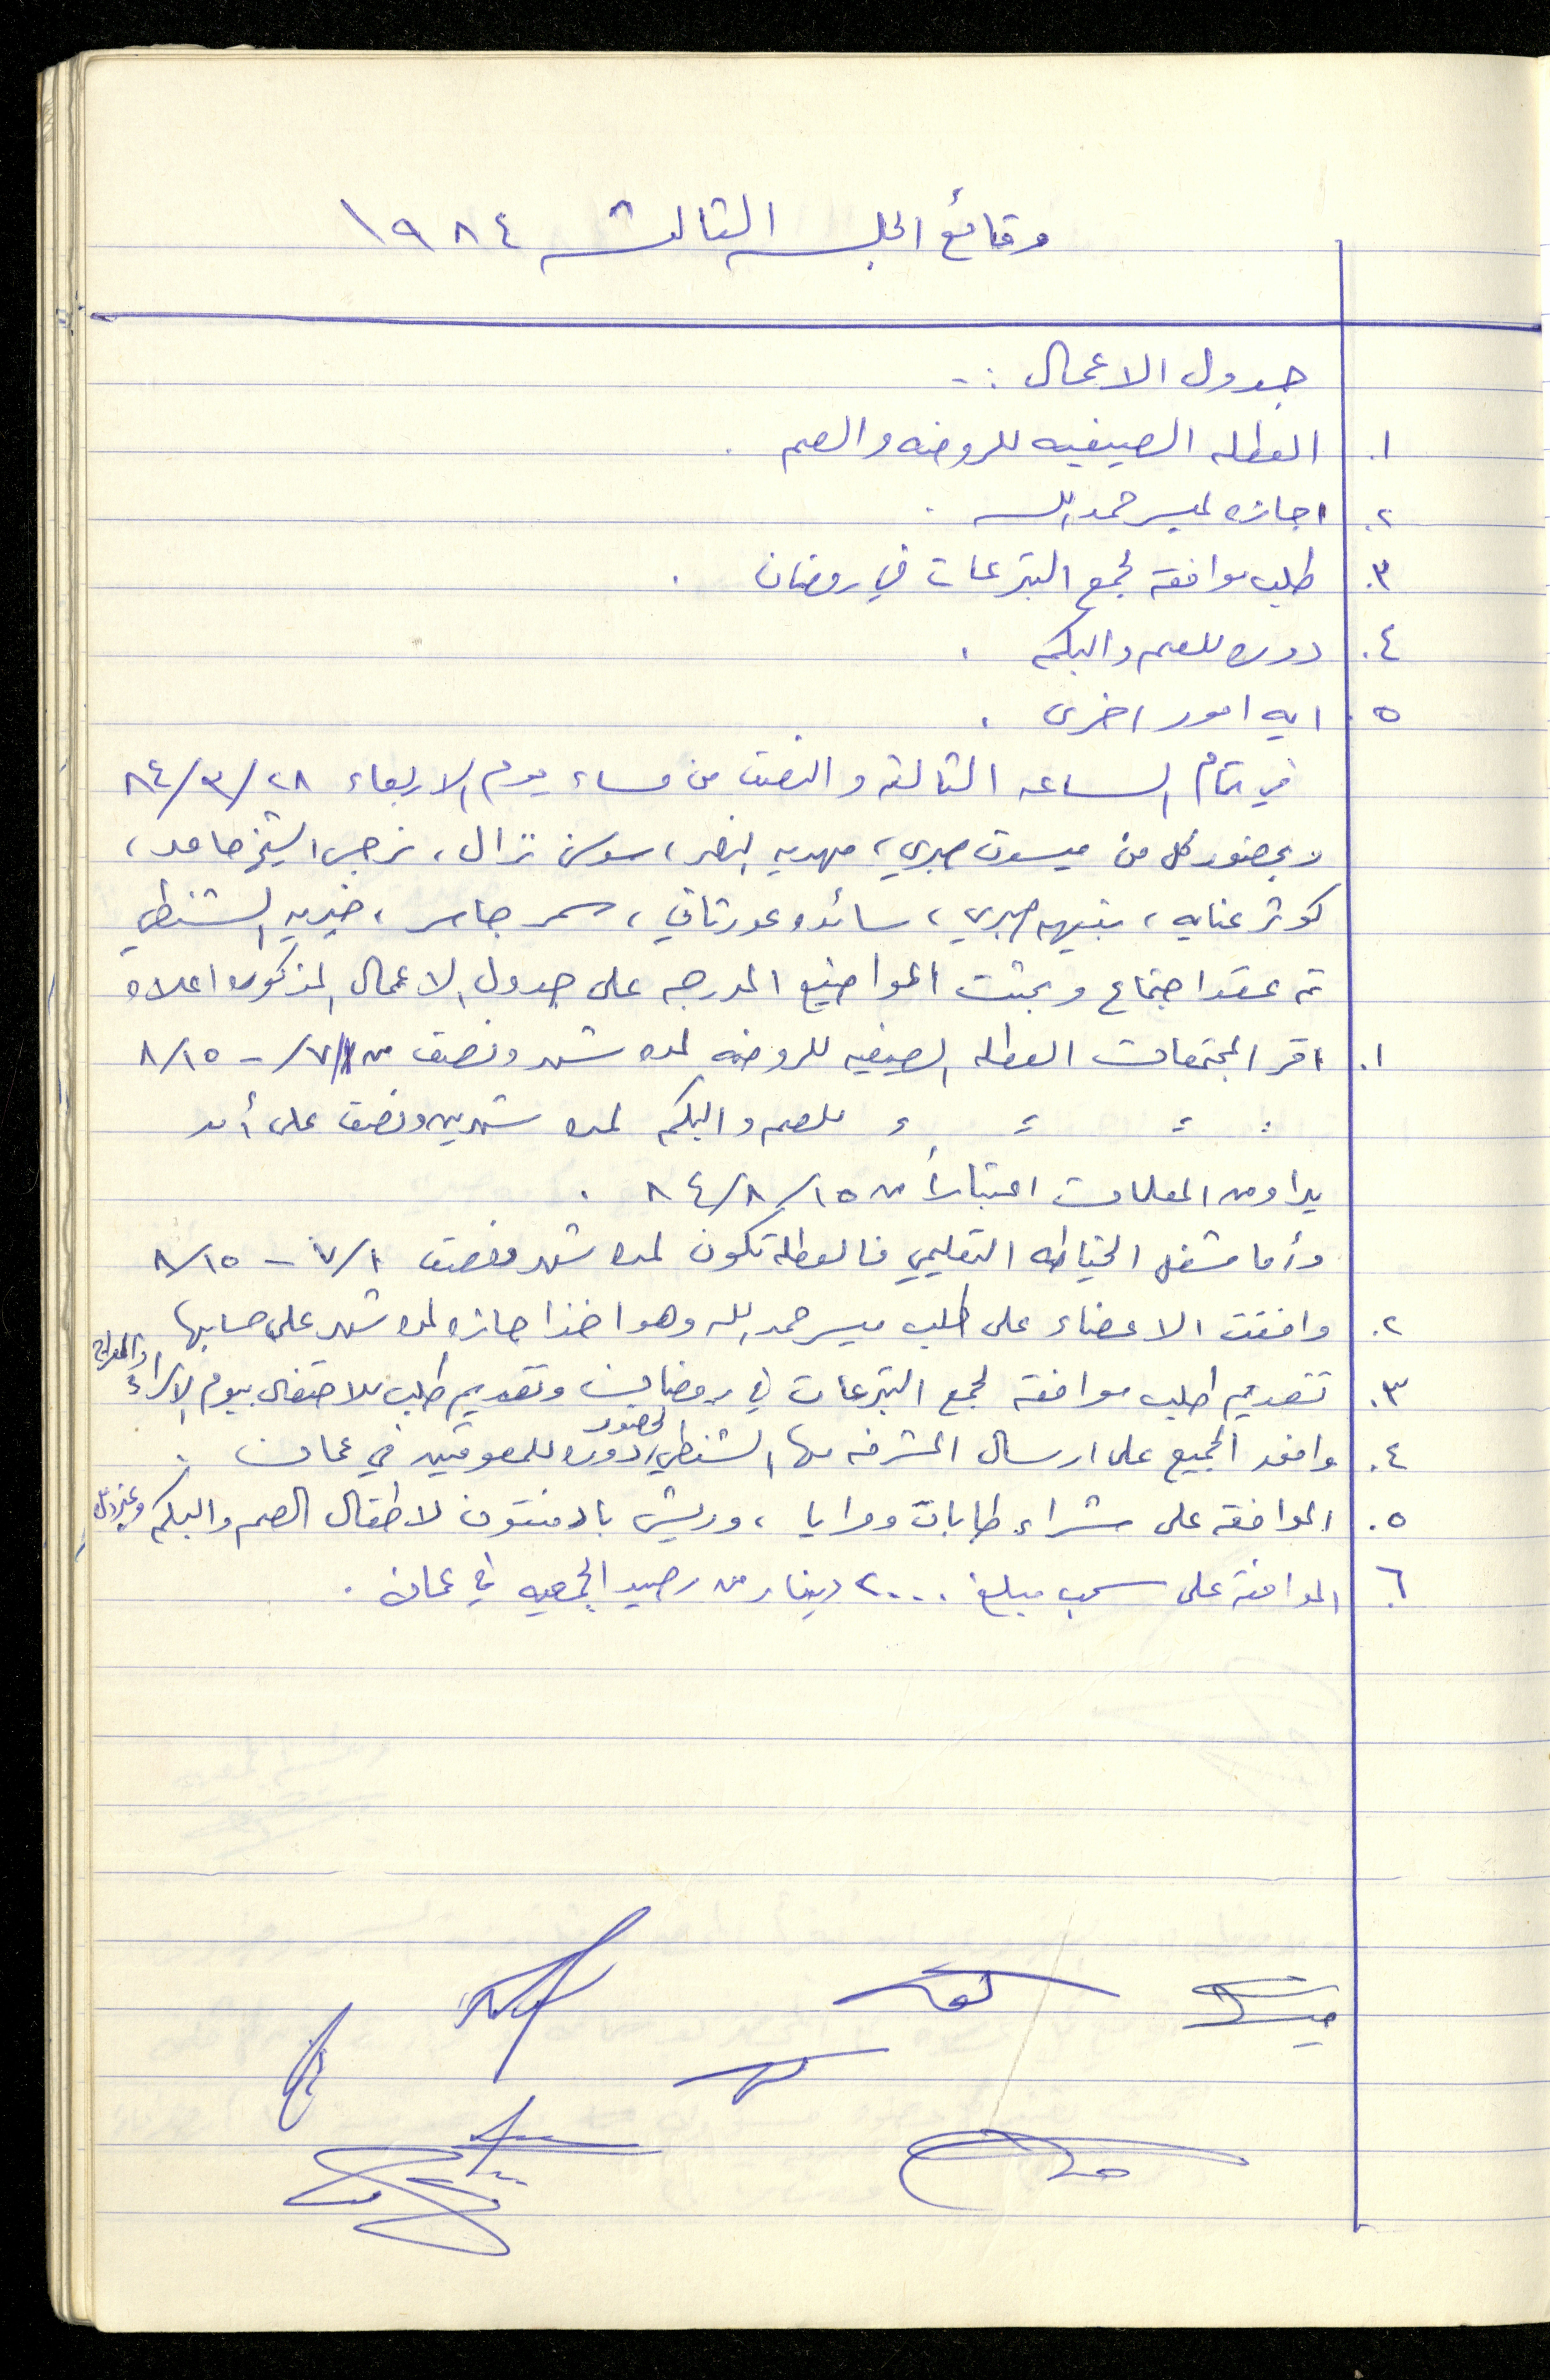 وقائع الجلسه الثالثه ١٩٨٤
جدول الاعمال :-
١. العطله الصيفيه للروضه والصم .
٢. اجازه لميسر حمد الله .
٣. طلب موافقه لجمع التبرعات في رمضان .
٤. دوره للصم والبكم .
٥. ايه امور اخرى .
في تمام الساعه الثالثه والنصف من مساء يوم الاربعاء ٨٤/٣/٢٨
وبحضور كل من ميسون صبري، مهديه النصر، سوسن نزال، نرجس الشيخ حامد،
كوثر عنايه، بنيهه صبري، سائده عورتاني، سمر جاسر، خيريه الشنطي
تم عقد اجتماع وبحثت المواضيع المدرجه على جدول الاعمال المذكوره اعلاه
١. اقر المجتمعات العطله الصيفيه للروضه لمده شهر ونصف من ٧/١ - ٨/١٥
= = = = للصم والبكم لمده شهرين ونصف على أن
يداومن المعلمات اعتباراً من ٨٤/٨/١٥ .
وأما مشغل الخياطه التعليمي فالعطلة تكون لمده شهر ونصف ٧/١ - ٨/١٥
٢. وافقت الاعضاء على طلب ميسر حمد الله وهو اخذ اجازه لمده شهر على حسابها
٣. تقديم طلب موافقه لجمع التبرعات في رمضان وتقديم طلب للاحتفال بيوم الاسراء والمعراج
٤. وافقد الجميع على ارسال المشرفه مها الشنطي لحضور دوره للمعوقين في عمان .
٥. الموافقه على شراء طابات ومرايا، وريش بادمنتون لاطفال الصم والبكم وغير ذلك
٦. الموافقه على سحب مبلغ ٢٠٠٠ دينار من رصيد الجمعيه في عمان .